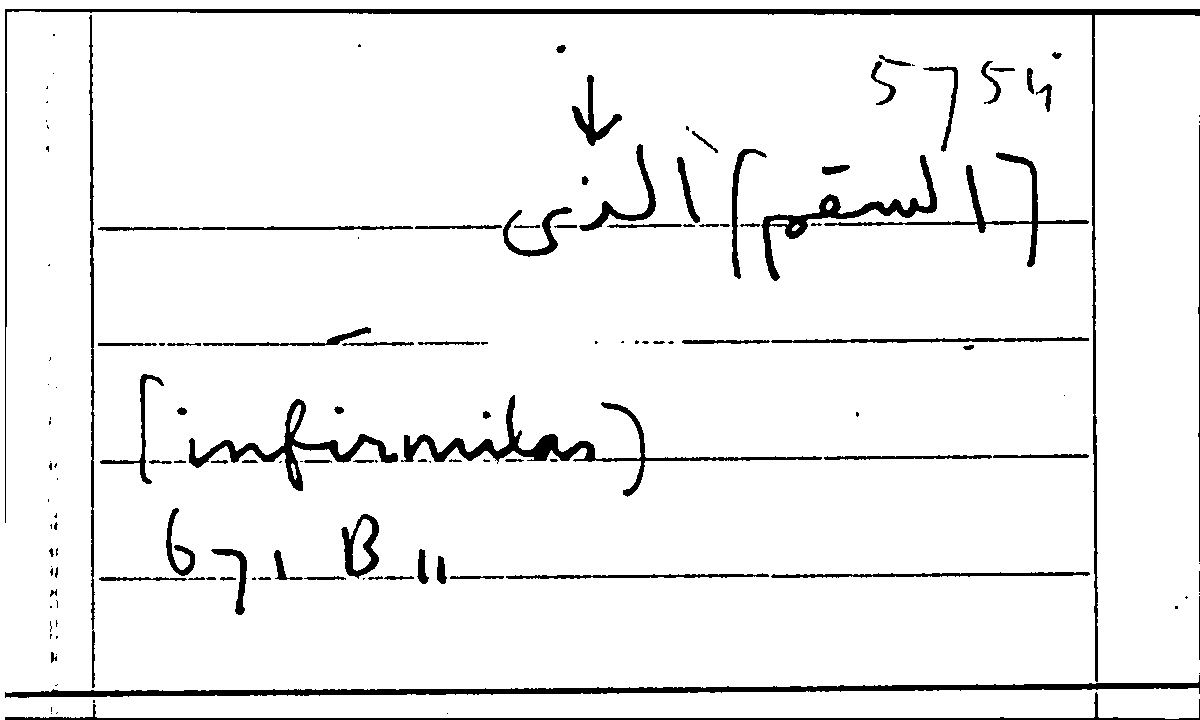 5754
[السقم] الذى
[infirmitas)
671 B 11